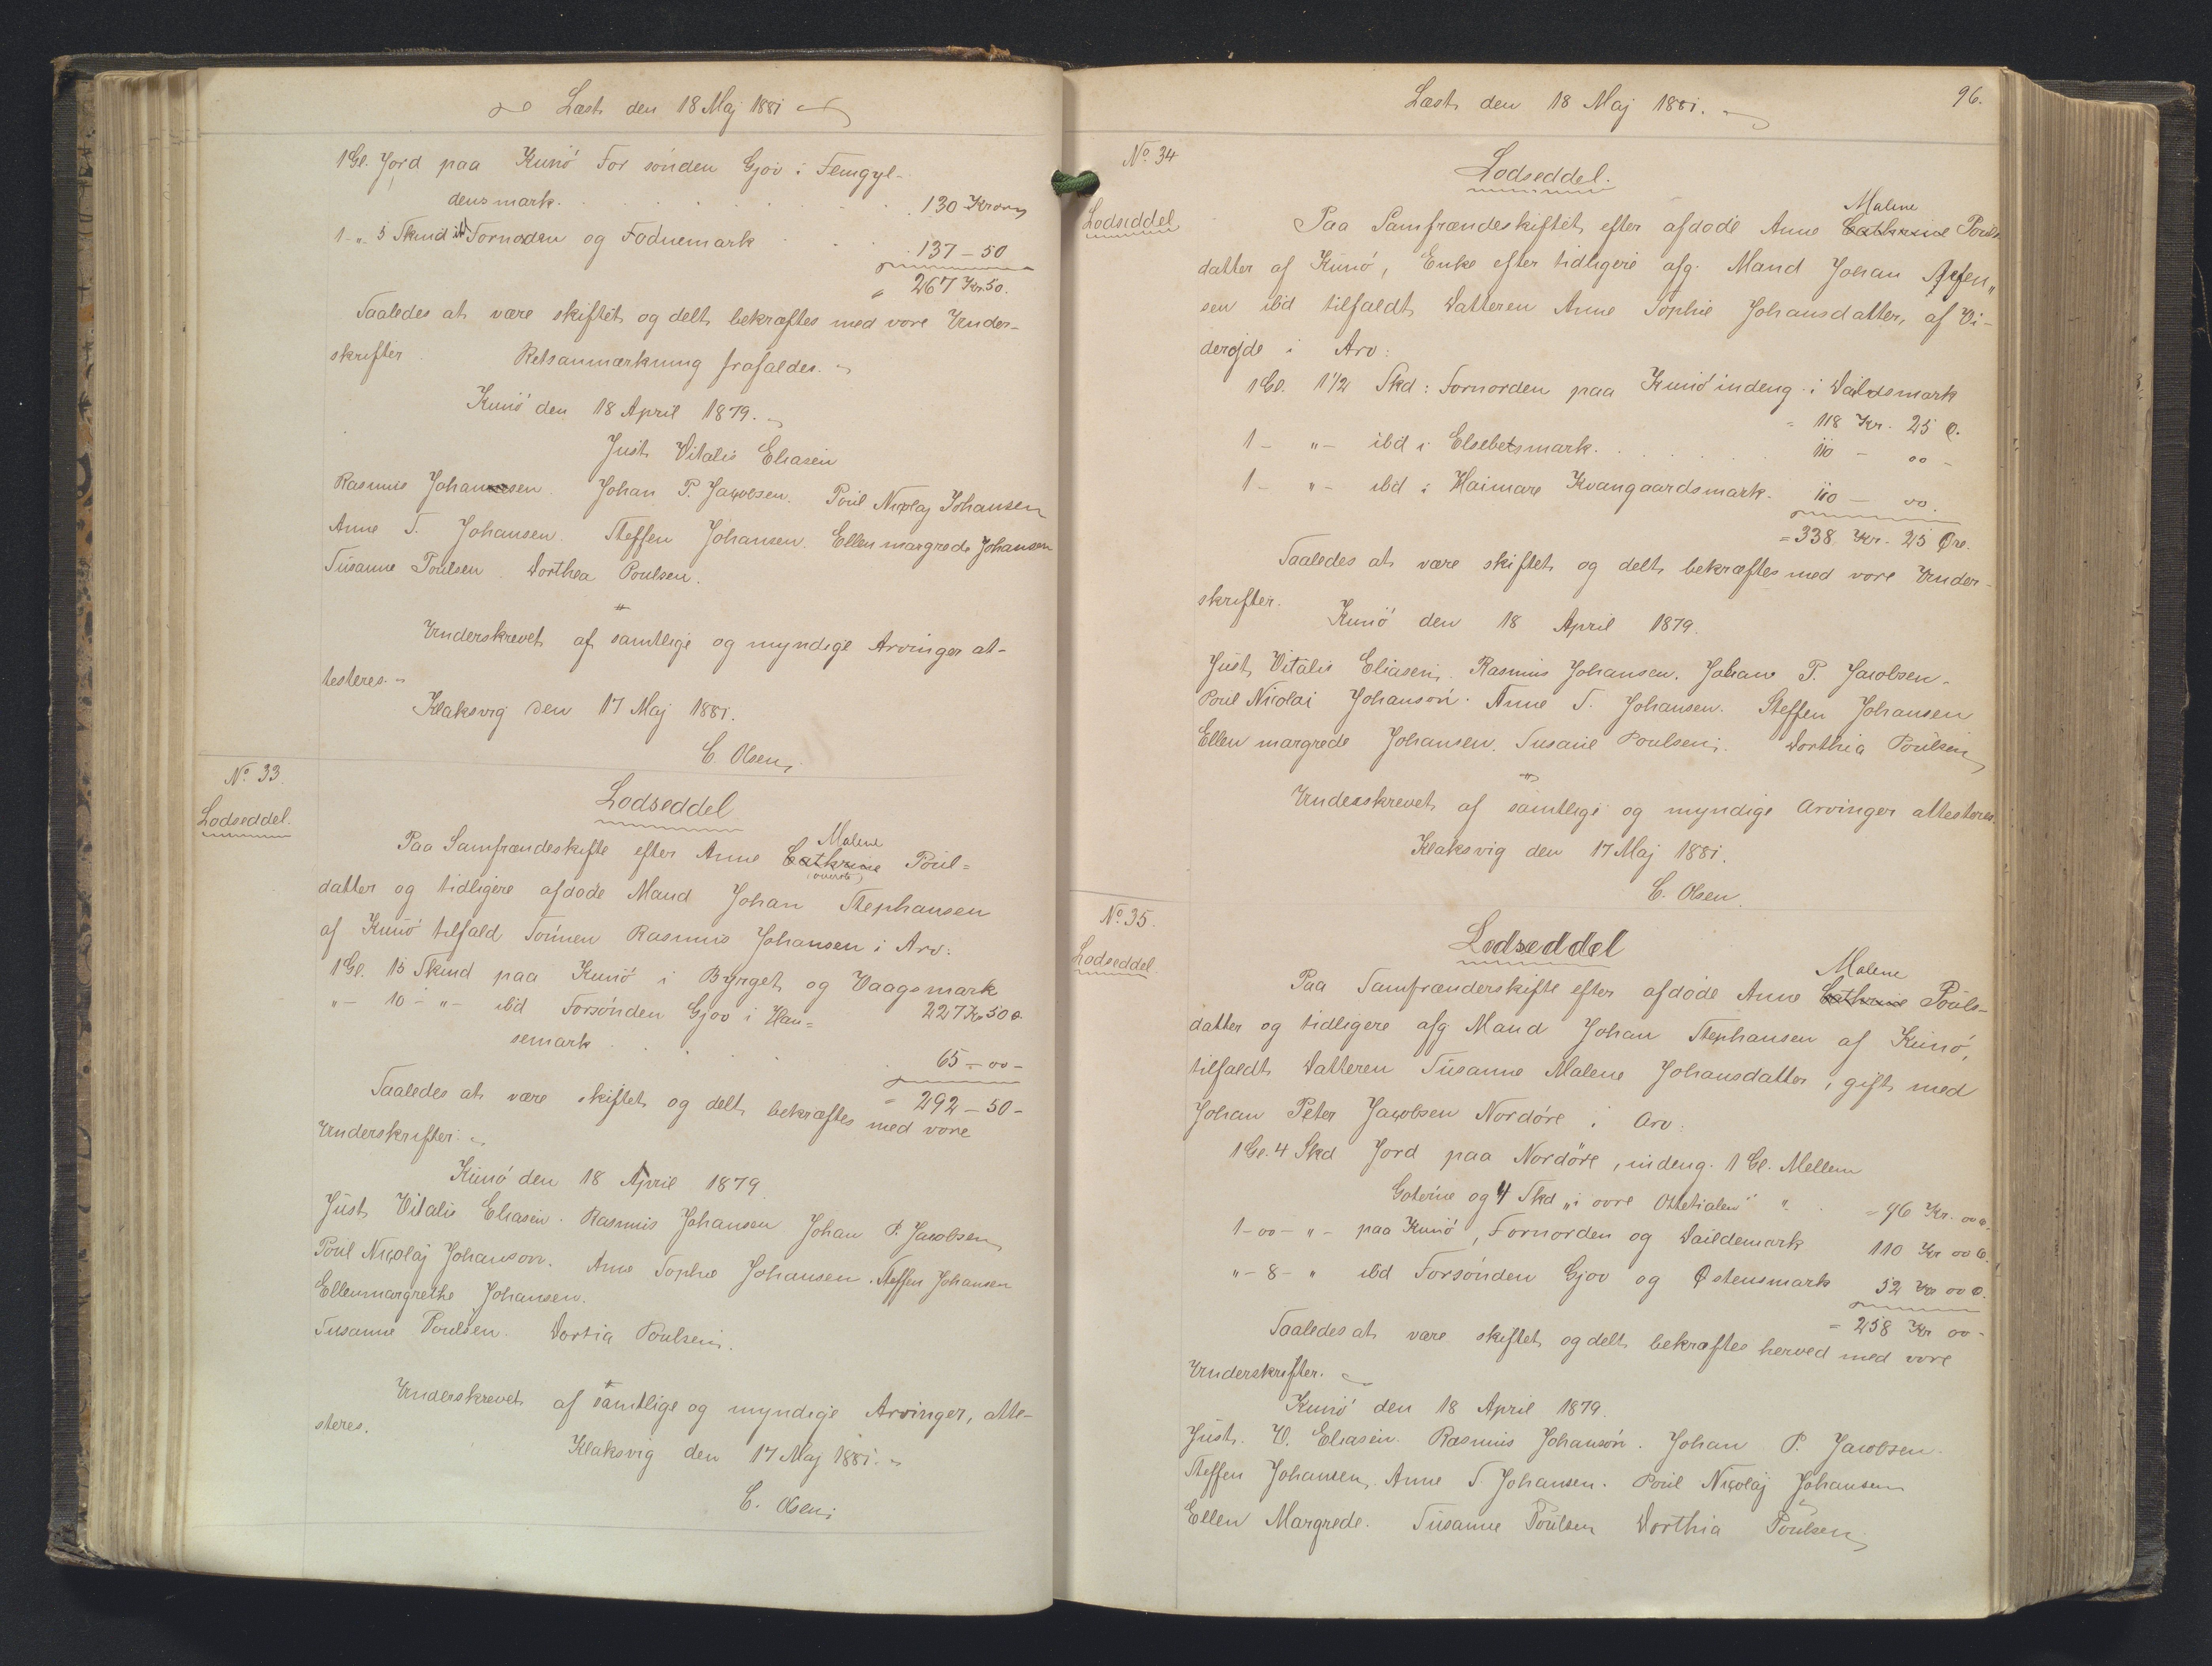 Læst den 18 Maj 1881
1 Gl. Jord paa Kunø For sønden Gjov i Femgyl-
densmark. 130 Kroner
1 - „ 5 Skind ibd Fornoden og Fodnemark 137 - 50
„ 267 Kr. 50.
Saaledes at være skiftet og delt bekræftes med vore Under-
skrifter. Retsanmærkning frafaldes.
Kunø den 18 April 1879.
Just Vitalis Eliasen
Rasmus Johannesen. Johan P. Jacobsen. Poul Nicolaj Johansen
Anne S. Johansen. Steffen Johansen. Ellen margrede Johansen
Susanne Poulsen Dorthea Poulsen.
Underskrevet af samtlige og myndige Arvinger at-
testeres.
Klaksvig den 17 Maj 1881.
C. Olsen
No. 33.
Lodseddel.
Lodseddel
Malene
Paa Samfrændeskifte efter Anne Cathrine Poul=
datter og tidligere afdøde Mand Johan Stephansen
af Kunø tilfald Sønnen Rasmus Johansen i Arv:
1 Gl. 15 Skind paa Kunø i Byrget og Vaagsmark
227 Kr 50 ø.
„ - 10 - „ - ibd Forsønden Gjov i Han=
semark 65 - 00 -
= 292 - 50 -
Saaledes at være skiftet og delt bekræftes med vore
Underskrifter.
Kunø den 18 April 1879
Just Vitalis Eliasen. Rasmus Johansen Johan P. Jacobsen
Poul Nicolaj Johanson. Anne Sophie Johansen. Steffen Johansen
Ellenmargrethe Johansen.
Susanne Poulsen. Dortia Poulsen.
Underskrevet af samtlige og myndige Arvinger, atte-
steres.
Klaksvig den 17 Maj 1881.
C. Olsen
Læst den 18 Maj 1881.
96.
No. 34
Lodseddel
Lodseddel.
Malene
Paa Samfrændeskiftet efter afdøde Anne Cathrine Pouls
datter af Kunø, Enke efter tidligere afg. Mand Johan Steffen„
sen ibd tilfaldt Datteren Anne Sophie Johansdatter, af Vi-
derejde i Arv:
1 Gl. 1 1/2 Skd: Fornorden paa Kunø indeng i Daildsmark
= 118 Kr. 25 Ø.
1 - „ - ibd i Elsebetsmark. 110 - 00 -
1 - „ - ibd i Haimare Kvangaardsmark. 110 - 00.
= 338 Kr. 25 Øre.
Saaledes at være skiftet og delt bekræftes med vore Under-
skrifter.
Kunø den 18 April 1879.
Just Vitalis Eliasen. Rasmus Johansen. Johan P. Jacobsen.
Poul Nicolai Johanson. Anne S. Johansen. Steffen Johansen
Ellen margrede Johansen. Susane Poulsen. Dorthia Poulsen
Underskrevet af samtlige og myndige Arvinger attesteres.
Klaksvig den 17 Maj 1881.
C. Olsen.
No. 35.
Lodseddel
Lodseddel
Malene
Paa Samfrænderskifte efter afdøde Anne Cathrine Pouls-
datter og tidligere afg. Mand Johan Stephansen af Kunø,
tilfaldt Datteren Susanne Malene Johansdatter, gift med
Johan Peter Jacobsen Nordøre i Arv:
1 Gl. 4 Skd Jord paa Nordøre, indeng. 1 Gl. Mellem
Goterne og 4 Skd „i ovre „ = 96 Kr. 00 ø.
1 - 00 - „ - paa Kunø, Fornorden og Daildemark 110 Kr 00 Ø.
„ - 8 - „ ibd Forsønden Gjov og Østensmark 52 Kr 00 Ø.
= 258 Kr 00 -
Saaledes at være skiftet og delt bekræftes herved med vore
Underskrifter.
Kunø den 18 April 1879.
Just. V. Eliasen. Rasmus Johanson. Johan P. Jacobsen.
Steffen Johansen. Anne S Johansen. Poul Nicolaj Johansen
Ellen Margrede. Susanne Poulsen Dorthia Poulsen